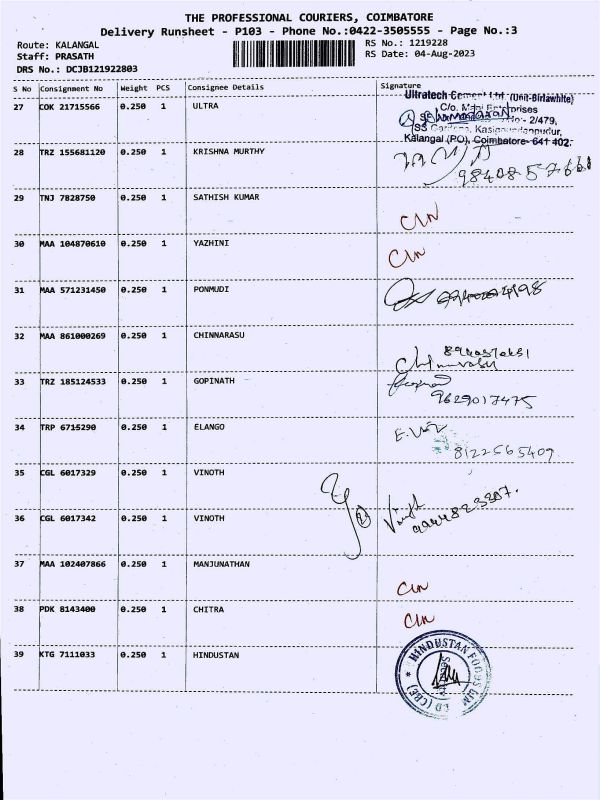 THE PROFESSIONAL COURIERS, COIMBATORE
Delivery Runsheet - P103 - Phone No.:0422-3505555 - Page No.:3
Route: KALANGAL RS No.: 1219228
Staff: PRASATH RS Date: 04-Aug-2023
DRS No.: DCJB121922803
S No Consignment No Weight PCS Consignee Details Signature
Ultratech Cement Ltd (Unit-Birlawhite)
27 COK 21715566 0.250 1 ULTRA
C/o.
No:- 2/479,
SS Gardens,
Kalangal (PO), Coimbatore- 641 402.
28 TRZ 155681120 0.250 1 KRISHNA MURTHY
29 TNJ 7828750 0.250 1 SATHISH KUMAR
CLN
30 MAA 104870610 0.250 1 YAZHINI
CLN
31 MAA 571231450 0.250 1 PONMUDI
32 MAA 861000269 0.250 1 CHINNARASU
33 TRZ 185124533 0.250 1 GOPINATH
9629017475
34 TRP 6715290 0.250 1 ELANGO
8122565409
35 CGL 6017329 0.250 1 VINOTH
36 CGL 6017342 0.250 1 VINOTH
37 MAA 102407866 0.250 1 MANJUNATHAN
CLN
38 PDK 8143400 0.250 1 CHITRA
CLN
39 KTG 7111033 0.250 1 HINDUSTAN
HINDUSTAN FOODS LIMITED (CBE)